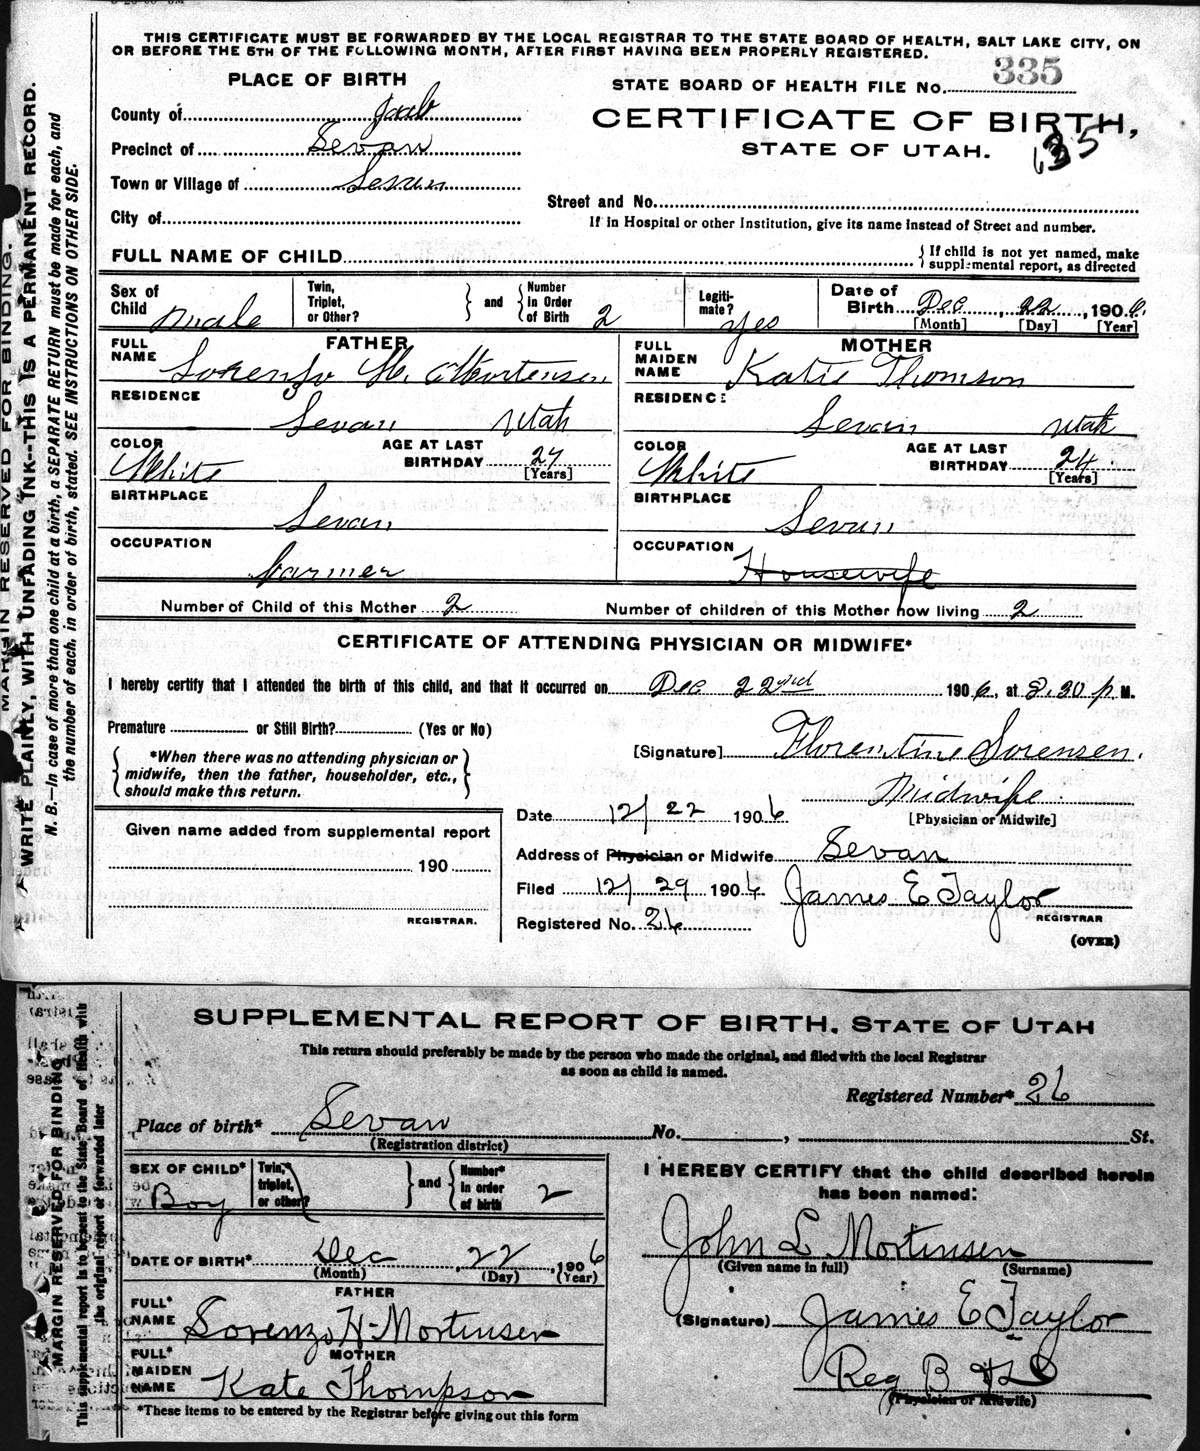 THIS CERTIFICATE MUST BE FORWARDED BY THE LOCAL REGISTRAR TO THE STATE BOARD OF HEALTH, SALT LAKE CITY, ON
OR BEFORE THE 5TH OF THE FOLLOWING MONTH, AFTER FIRST HAVING BEEN PROPERLY REGISTERED.
PLACE OF BIRTH
STATE BOARD OF HEALTH FILE No. 335
County of Juab
CERTIFICATE OF BIRTH,
STATE OF UTAH.
Precinct of Levan
Town or Village of Levan
Street and No.
City of
If in Hospital or other Institution, give its name instead of Street and number.
FULL NAME OF CHILD
{ If child is not yet named, make
supplemental report, as directed
Sex of Child Male
Twin, Triplet, or Other? } and { Number in Order of Birth 2
Legitimate? yes
Date of Birth Dec 22, 1906
[Month] [Day] [Year]
FATHER
FULL NAME Lorenzo H. Mortensen
MOTHER
FULL MAIDEN NAME Katie Thomson
RESIDENCE Levan Utah
RESIDENCE Levan Utah
COLOR White
AGE AT LAST BIRTHDAY 27 [Years]
COLOR White
AGE AT LAST BIRTHDAY 24 [Years]
BIRTHPLACE Levan
BIRTHPLACE Levan
OCCUPATION Farmer
OCCUPATION Housewife
Number of Child of this Mother 2
Number of children of this Mother now living 2
CERTIFICATE OF ATTENDING PHYSICIAN OR MIDWIFE*
I hereby certify that I attended the birth of this child, and that it occurred on Dec 22nd 1906, at 8.30 P M.
Premature or Still Birth? (Yes or No)
{ *When there was no attending physician or
midwife, then the father, householder, etc.,
should make this return. }
[Signature] Florentine Sorensen.
Midwife
[Physician or Midwife]
Date 12/22 1906
Given name added from supplemental report
190
REGISTRAR.
Address of Physician or Midwife Levan
Filed 12/29 1906 James E Taylor
REGISTRAR
Registered No. 26
(OVER)
MARGIN RESERVED FOR BINDING.
WRITE PLAINLY, WITH UNFADING INK--THIS IS A PERMANENT RECORD.
N. B.—In case of more than one child at a birth, a SEPARATE RETURN must be made for each, and
the number of each, in order of birth, stated. SEE INSTRUCTIONS ON OTHER SIDE.
SUPPLEMENTAL REPORT OF BIRTH, STATE OF UTAH
This return should preferably be made by the person who made the original, and filed with the local Registrar
as soon as child is named.
Registered Number* 26
Place of birth* Levan No. , St.
(Registration district)
SEX OF CHILD* Boy
Twin, triplet, or other? } and { Number* in order of birth 2
I HEREBY CERTIFY that the child described herein
has been named:
John L Mortensen
(Given name in full) (Surname)
DATE OF BIRTH* Dec, 22, 1906
(Month) (Day) (Year)
FATHER
FULL* NAME Lorenzo H Mortensen
(Signature) James E Taylor
MOTHER
FULL* MAIDEN NAME Kate Thompson
Reg B
(Physician or Midwife)
*These items to be entered by the Registrar before giving out this form
MARGIN RESERVED FOR BINDING
This supplemental report is to be sent to the State Board of Health with
the original report or forwarded later